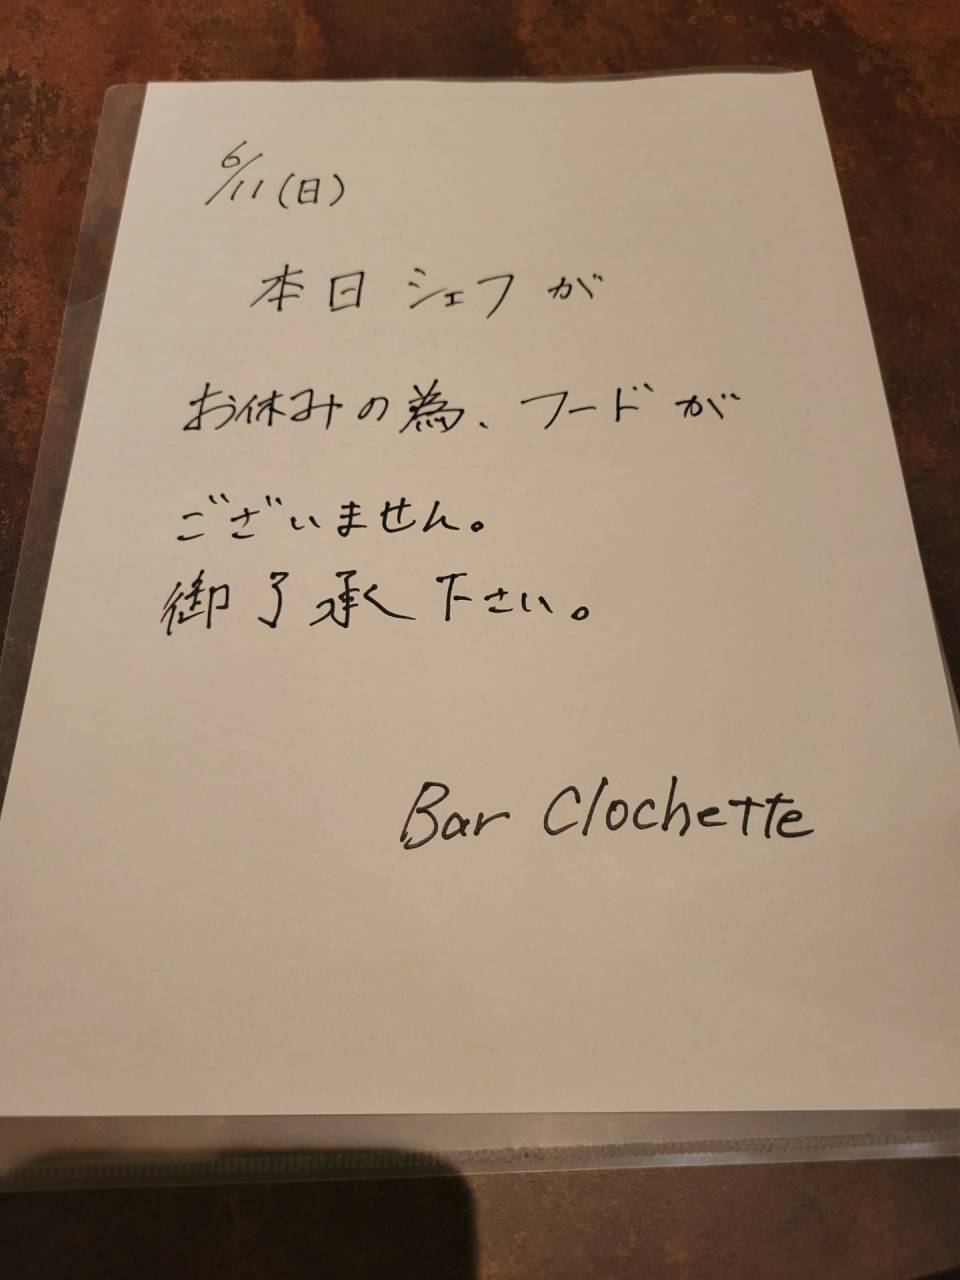 6/11(日)
本日シェフが
お休みの為、フードが
ございません。
御了承下さい。
Bar Clochette